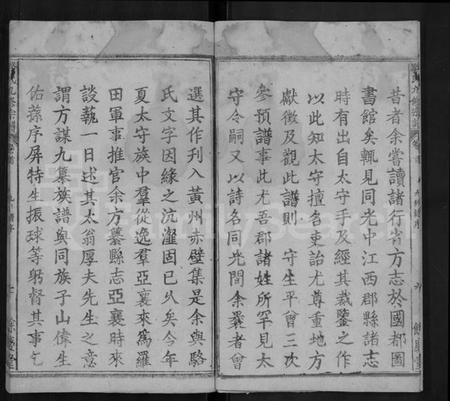 昔者余嘗讀諸行省方志於國都圖
書館矣輒見同光中江西郡縣諸志
時有出自太守手及經其裁鑒之作
以此知太守擅名吏詒尤尊重地方
獻徵及觀此譜則 守生平曾三次
參預譜事此尤吾郡諸姓所罕見太
守令嗣又以 詩名同光間余曩者曾
選其作刋入黃州赤壁集是余與駱
氏文字因緣之沆瀣固已乆矣今年
夏太守族中羣從逸羣亞襄來篤羅
田軍事推官余方纂縣志亞襄時來
談蓺一日述其太翁厚夫先生之意
謂方謀九纂族譜與同族子山偉生
佑蓀序屏特生振球等躬督其事乞